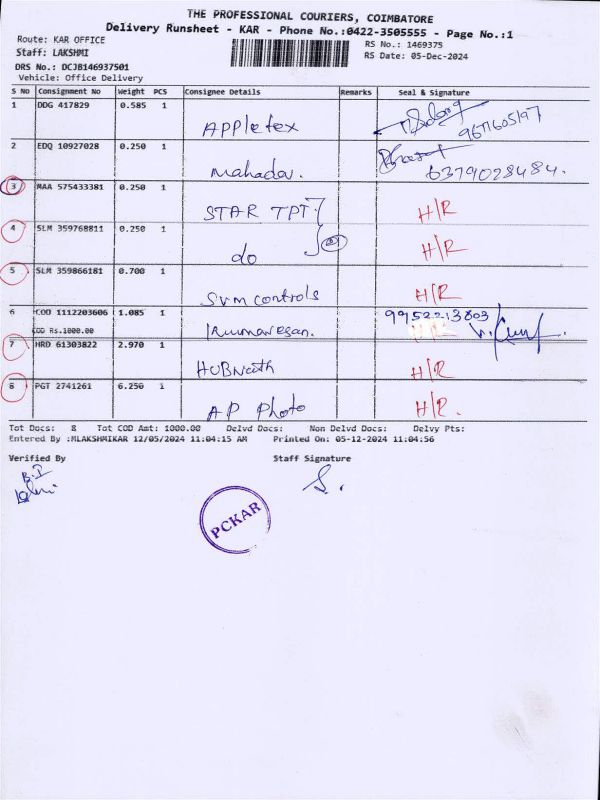 THE PROFESSIONAL COURIERS, COIMBATORE
Delivery Runsheet - KAR - Phone No.:0422-3505555 - Page No.:1
Route: KAR OFFICE
RS No.: 1469375
Staff: LAKSHMI
RS Date: 05-Dec-2024
DRS No.: DCJB146937501
Vehicle: Office Delivery
S No Consignment No Weight PCS Consignee Details Remarks Seal & Signature
1 DDG 417829 0.585 1
APPletex 9677605197
2 EDQ 10927028 0.250 1
Mahadev. 6379028484.
3 MAA 575433381 0.250 1
STAR TPT H/R
4 SLM 359768811 0.250 1
do H/R
5 SLM 359866181 0.700 1
Svm controls H/R
6 COD 1112203606 1.085 1 9952213803
COD Rs.1000.00 Kumaresan.
7 HRD 61303822 2.970 1
H/R
8 PGT 2741261 6.250 1
AP Photo H/R.
Tot Docs: 8 Tot COD Amt: 1000.00 Delvd Docs: Non Delvd Docs: Delvy Pts:
Entered By :MLAKSHMIKAR 12/05/2024 11:04:15 AM Printed On: 05-12-2024 11:04:56
Verified By Staff Signature
PCKAR